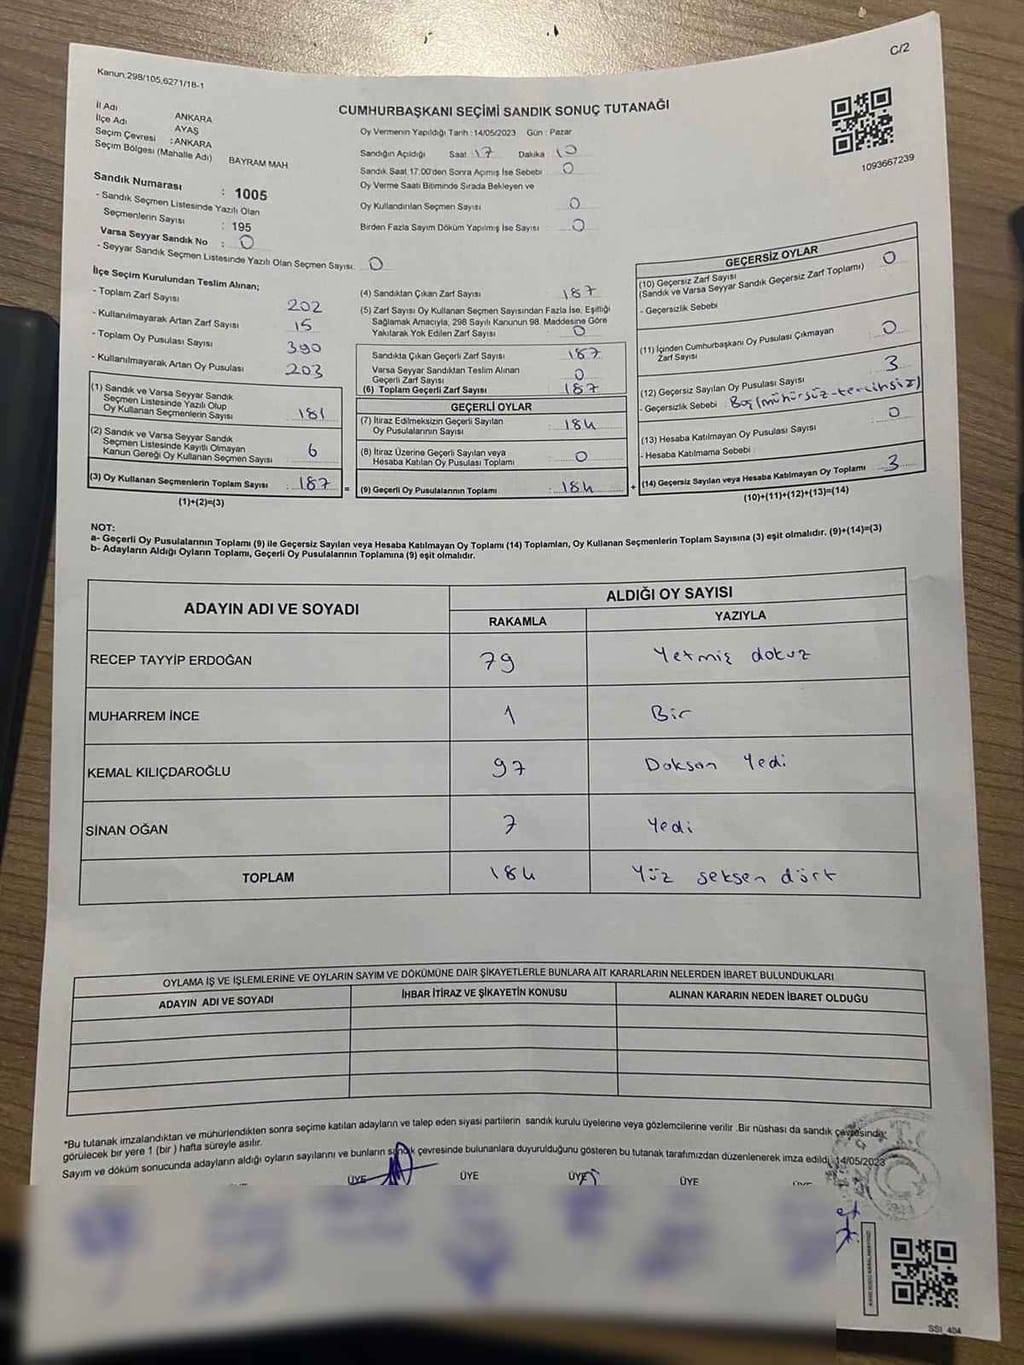 C/2
Kanun:298/105,6271/18-1
CUMHURBAŞKANI SEÇİMİ SANDIK SONUÇ TUTANAĞI
İl Adı ANKARA
İlçe Adı AYAŞ
Seçim Çevresi : ANKARA
Seçim Bölgesi (Mahalle Adı) BAYRAM MAH
Sandık Numarası : 1005
- Sandık Seçmen Listesinde Yazılı Olan
Seçmenlerin Sayısı : 195
Varsa Seyyar Sandık No : 0
- Seyyar Sandık Seçmen Listesinde Yazılı Olan Seçmen Sayısı: 0
Oy Vermenin Yapıldığı Tarih : 14/05/2023 Gün : Pazar
Sandığın Açıldığı Saat 17 Dakika 10
Sandık Saat 17:00'den Sonra Açımış İse Sebebi 0
Oy Verme Saati Bitiminde Sırada Bekleyen ve
Oy Kullandırılan Seçmen Sayısı 0
Birden Fazla Sayım Döküm Yapılmış İse Sayısı : 0
1093667239
İlçe Seçim Kurulundan Teslim Alınan;
- Toplam Zarf Sayısı 202
- Kullanılmayarak Artan Zarf Sayısı 15
- Toplam Oy Pusulası Sayısı 390
- Kullanılmayarak Artan Oy Pusulası 203
(1) Sandık ve Varsa Seyyar Sandık
Seçmen Listesinde Yazılı Olup
Oy Kullanan Seçmenlerin Sayısı : 181
(2) Sandık ve Varsa Seyyar Sandık
Seçmen Listesinde Kayıtlı Olmayan
Kanun Gereği Oy Kullanan Seçmen Sayısı 6
(3) Oy Kullanan Seçmenlerin Toplam Sayısı : 187 =
(1)+(2)=(3)
(4) Sandıktan Çıkan Zarf Sayısı 187
(5) Zarf Sayısı Oy Kullanan Seçmen Sayısından Fazla İse, Eşitliği
Sağlamak Amacıyla, 298 Sayılı Kanunun 98. Maddesine Göre
Yakılarak Yok Edilen Zarf Sayısı 0
Sandıkta Çıkan Geçerli Zarf Sayısı 187
Varsa Seyyar Sandıktan Teslim Alınan
Geçerli Zarf Sayısı 0
(6) Toplam Geçerli Zarf Sayısı 187
GEÇERLİ OYLAR
(7) İtiraz Edilmeksizin Geçerli Sayılan
Oy Pusulalarının Sayısı : 184
(8) İtiraz Üzerine Geçerli Sayılan veya
Hesaba Katılan Oy Pusulası Toplamı 0
(9) Geçerli Oy Pusulalarının Toplamı : 184 +
GEÇERSİZ OYLAR
(10) Geçersiz Zarf Sayısı 0
(Sandık ve Varsa Seyyar Sandık Geçersiz Zarf Toplamı)
- Geçersizlik Sebebi
(11) İçinden Cumhurbaşkanı Oy Pusulası Çıkmayan
Zarf Sayısı 0
(12) Geçersiz Sayılan Oy Pusulası Sayısı 3
- Geçersizlik Sebebi Boş (mühürsüz-tercihsiz)
(13) Hesaba Katılmayan Oy Pusulası Sayısı 0
- Hesaba Katılmama Sebebi
(14) Geçersiz Sayılan veya Hesaba Katılmayan Oy Toplamı 3
(10)+(11)+(12)+(13)=(14)
NOT:
a- Geçerli Oy Pusulalarının Toplamı (9) ile Geçersiz Sayılan veya Hesaba Katılmayan Oy Toplamı (14) Toplamları, Oy Kullanan Seçmenlerin Toplam Sayısına (3) eşit olmalıdır. (9)+(14)=(3)
b- Adayların Aldığı Oyların Toplamı, Geçerli Oy Pusulalarının Toplamına (9) eşit olmalıdır.
ADAYIN ADI VE SOYADI ALDIĞI OY SAYISI
RAKAMLA YAZIYLA
RECEP TAYYİP ERDOĞAN 79 Yetmiş dokuz
MUHARREM İNCE 1 Bir
KEMAL KILIÇDAROĞLU 97 Doksan Yedi
SİNAN OĞAN 7 Yedi
TOPLAM 184 Yüz seksen dört
OYLAMA İŞ VE İŞLEMLERİNE VE OYLARIN SAYIM VE DÖKÜMÜNE DAİR ŞİKAYETLERLE BUNLARA AİT KARARLARIN NELERDEN İBARET BULUNDUKLARI
ADAYIN ADI VE SOYADI İHBAR İTİRAZ VE ŞİKAYETİN KONUSU ALINAN KARARIN NEDEN İBARET OLDUĞU
*Bu tutanak imzalandıktan ve mühürlendikten sonra seçime katılan adayların ve talep eden siyasi partilerin sandık kurulu üyelerine veya gözlemcilerine verilir .Bir nüshası da sandık çevresinde
görülecek bir yere 1 (bir ) hafta süreyle asılır.
Sayım ve döküm sonucunda adayların aldığı oyların sayılarını ve bunların sandık çevresinde bulunanlara duyurulduğunu gösteren bu tutanak tarafımızdan düzenlenerek imza edildi. 14/05/2023
ÜYE ÜYE ÜYE ÜYE
SSI_404